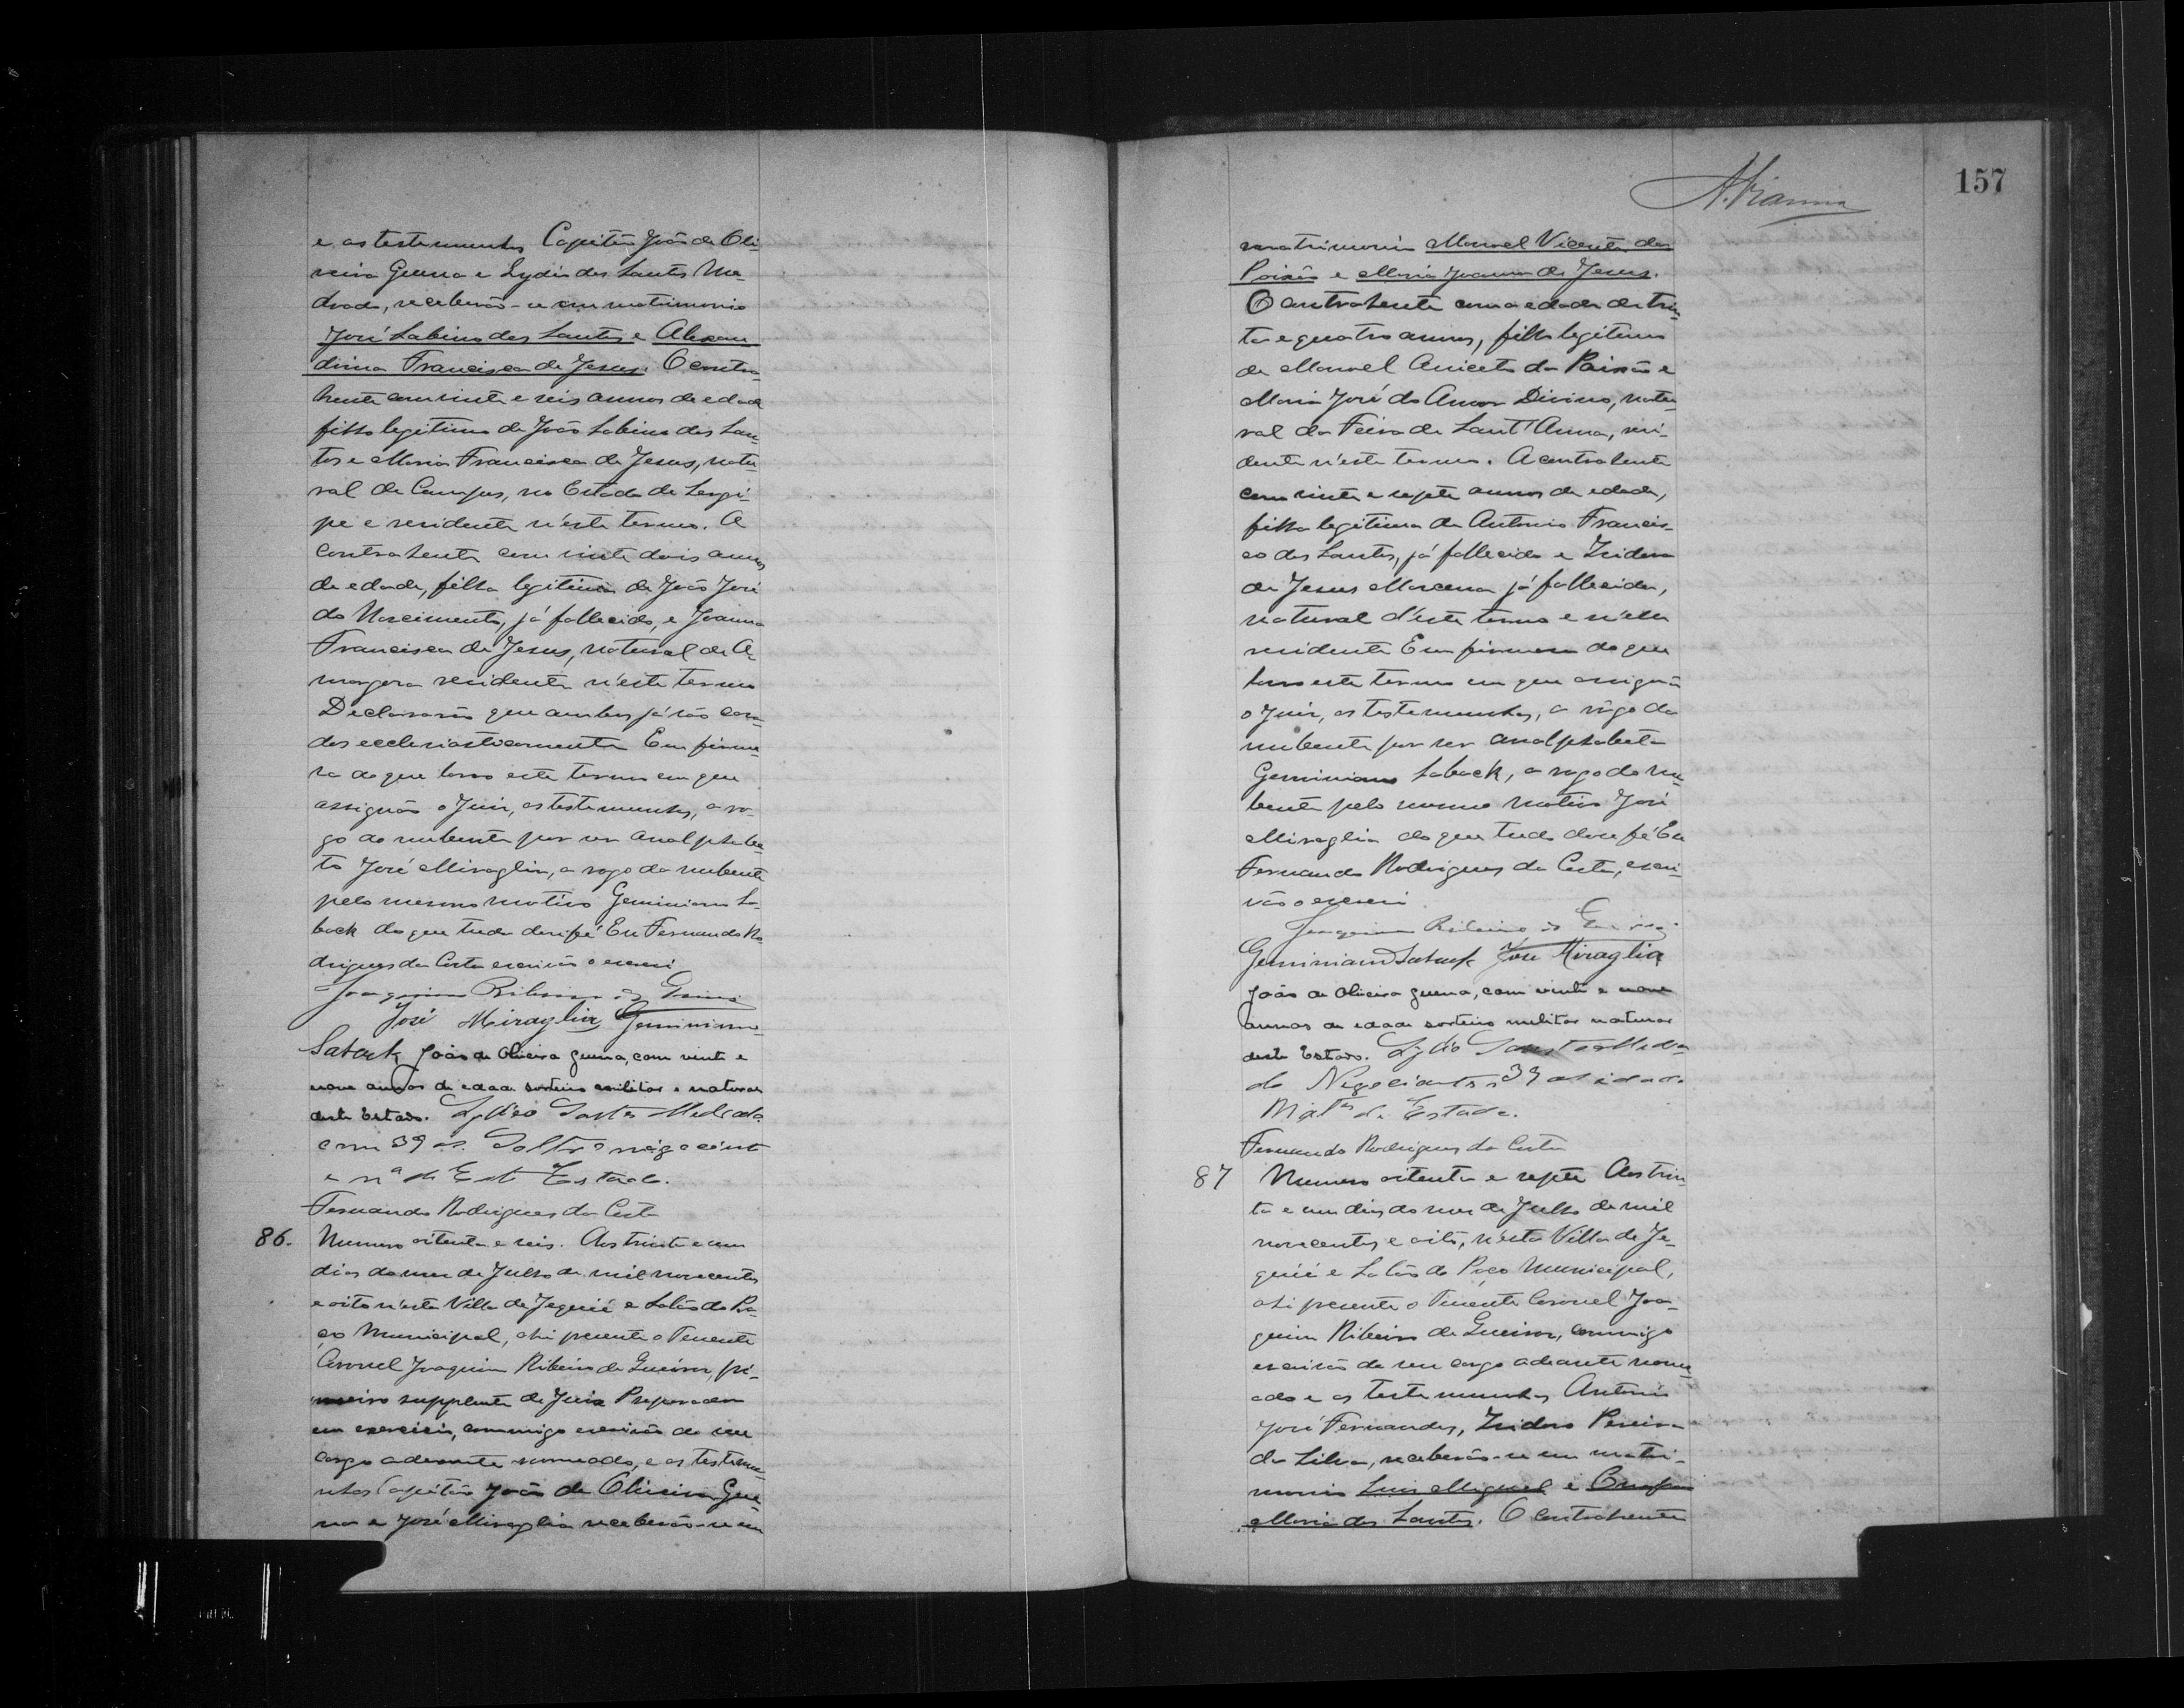 e as testemunhas Capitão João de Oli-
veira Guerra e Lydio dos Santos Me-
drado, receberão-se em matrimonio
José Sabino dos Santos e Alexan
drina Francisca de Jesus. O contra-
hente com vinte e seis annos de edade
filho legitimo de João Sabino dos San-
tos e Maria Francisca de Jesus, natu-
ral de Campos, no Estado de Sergi-
pe e residente n'este termo. A
contrahente com vinte dois annos
de edade, filha legitima de João José
do Nascimento, já fallecido, e Joanna
Francisca de Jesus, natural de A-
margosa residente n'este termo
Declararão que ambos já são casa-
dos ecclesiasticamente Em firme
za do que lavro este termo em que
assignão o Juiz, as testemunhas, a ro-
go do nubente por ser analphabe-
to José Miraglia, a rogo da nubente
pelo mesmo motivo Geminiano Sa-
back do que tudo dou fé Eu Fernando Ro
drigues da Costa escrivão o escrevi
Joaquim Ribeiro de
José Miraglia Geminiano
Saback João de Oliveira Guerra, com vinte e
nove annos de edade solteiro militar e natural
deste Estado. Lydio Santos Medrado
com 39 as. Soltrº negociante
e nal de Este Estado.
Fernando Rodrigues da Costa
86. Numero oitenta e seis. Aos trinta e um
dias do mez de Julho de mil novecentos
e oito n'esta Villa de Jequié e Salão do Pa
ço Municipal, ahi presente o Tenente
Coronel Joaquim Ribeiro de Queiroz, pri-
meiro supplente de Juiz Preparador
em exercicio, commigo escrivão do seu
cargo adeante nomeado, e as testemu-
nhas Capitão João de Oliveira Gue
rra e José Miraglia receberão-se em
157
A. Vianna
matrimonio Manoel Vicente da
Paixão e Maria Joanna de Jesus.
O contrahente com a edade de trin-
ta e quatro annos, filho legitimo
de Manoel Aniceto da Paixão e
Maria José do Amor Divino, natu-
ral da Feira de Sant'Anna, resi-
dente n'este termo. A contrahente
com vinte e sepete annos de edade,
filha legitima de Antonio Francis-
co dos Santos, já fallecido e Izidora
de Jesus já fallecida,
natural d'este termo e n'elle
residente Em firmeza do que
lavro este termo em que assignão
o Juiz, as testemunhas, a rôgo da
nubente por ser analphabeta
Geminiano Saback, a rogo do nu-
bente pelo mesmo motivo José
Miraglia do que tudo dou fé Eu
Fernando Rodrigues da Costa, escri-
vão o escrevi
Joaquim Ribeiro de
Geminiano Saback José Miraglia
João de Oliveira Guerra, com vinte e nove
annos de edade solteiro militar natural
deste Estado. Lydio Santos Medra
do Negociante 39 as idade
de Estado.
Fernando Rodrigues da Costa
87 Numero oitenta e sepete Aos trin-
ta e um dias do mez de Julho de mil
novecentos e oito, n'esta Villa de Je-
quié e Salão do Paço Municipal,
ahi presente o Tenente Coronel Joa-
quim Ribeiro de Queiroz, commigo
escrivão de seu cargo adeante nome
ado e as testemunhas Antonio
José Fernandes, Izidoro Pereira
da Silva, receberão-se em matri-
monio Luis Miguel e
Maria dos Santos. O contrahente